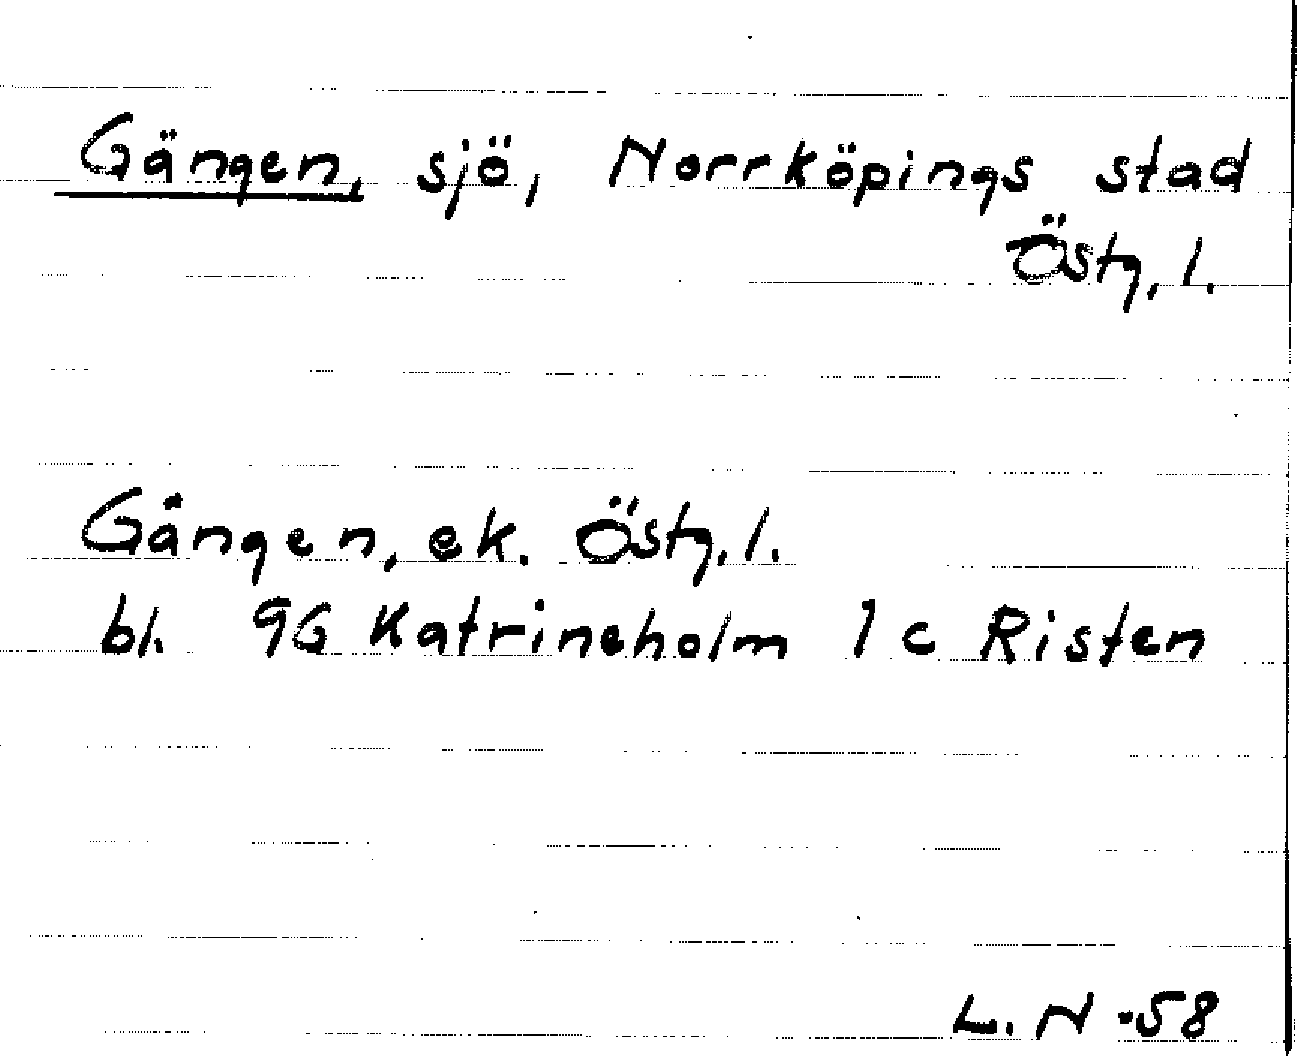 Gängen, sjö, Norrköpings stad
Östg. l.
Gången, ek. Östg. l.
bl. 9G Katrineholm 1 c Risten
L. N -58